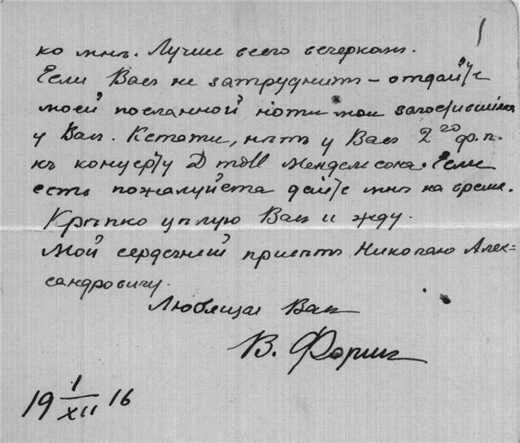 ко мнѣ. Лучше всего вечеркомъ.
Если Васъ не затруднитъ – отдайте
моей посланной ноты мои загостившіяся
у Васъ. Кстати, нѣтъ у Васъ 2го ф.п.
къ концерту D moll Мендельсона. Если
есть пожалуйста дайте мнѣ на время.
Крѣпко цѣлую Васъ и жду.
Мой сердечный привѣтъ Николаю Алек-
сандровичу.
Любящая Васъ
В.
19 1/XII 16